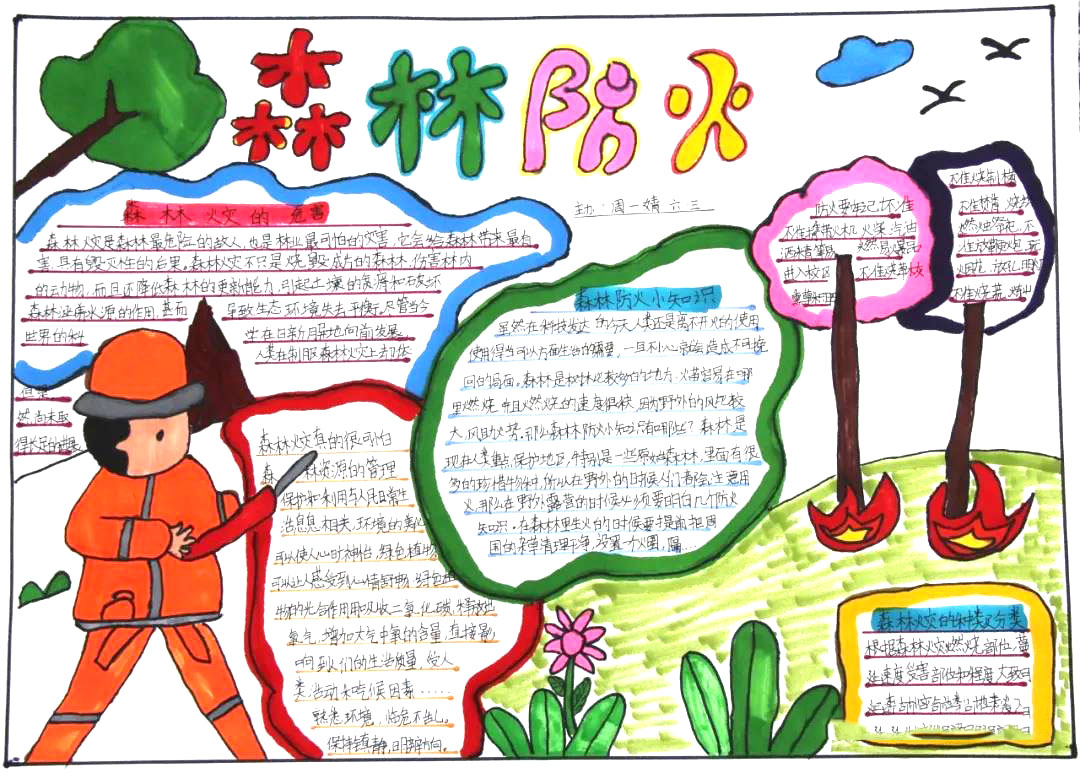 森林防火
主办:周一婧 六三
森林火灾的危害
森林火灾是森林最危险的敌人,也是林业最可怕的灾害,它会给森林带来最有
害具有毁灭性的后果,森林火灾不只是烧毁成片的森林,伤害林内
的动物,而且还降低森林的更新能力,引起土壤的贫瘠和破坏
森林涵养水源的作用,甚而 导致生态环境失去平衡,尽管当今
世界的科 学在日新月异地向前发展
人类在制服森林火灾上却依
然,尚未取
得长足的进展
森林火灾真的很可怕
林资源的管理
保护和利用与人民日常生
活息息相关,环境的美化
可以使人心旷神怡,绿色植物
可以让人感受到心情舒畅,绿色植
物的光合作用用吸收二氧化碳,释放出
氧气,增加大气中氧的含量,直接影
响到人们的生活质量,受人
类活动和气候因素……
熟悉环境,临危不乱。
保持镇静,明辨方向。
森林防火小知识
虽然在科技发达的今天人类还是离不开火的使用
使用得当可以方面生活的需要,一旦不小心就会造成不可挽
回的局面。森林是树林比较多的地方,火苗容易在哪
里燃烧,并且燃烧的速度很快,因为野外的风比较
大,风助火势,那么森林防火小知识有哪些?森林是
现在人类重点保护地区,特别是一些原始森林,里面有很
多的珍惜物种,所以在野外的时候人们都会注意用
火,那么在野外露营的时候必须要明白几个防火
知识。在森林里生火的时候要提前把周
围的杂草清理干净,设置一个火圈,隔……
防火要牢记不准
不准携带火机 火柴 汽油
酒精等易燃易爆品
进入校区 不准烧草枝
不准烧荒
森林火灾的种类及分类
根据森林火灾燃烧部位,蔓
延速度,受害部位和程度,大致可